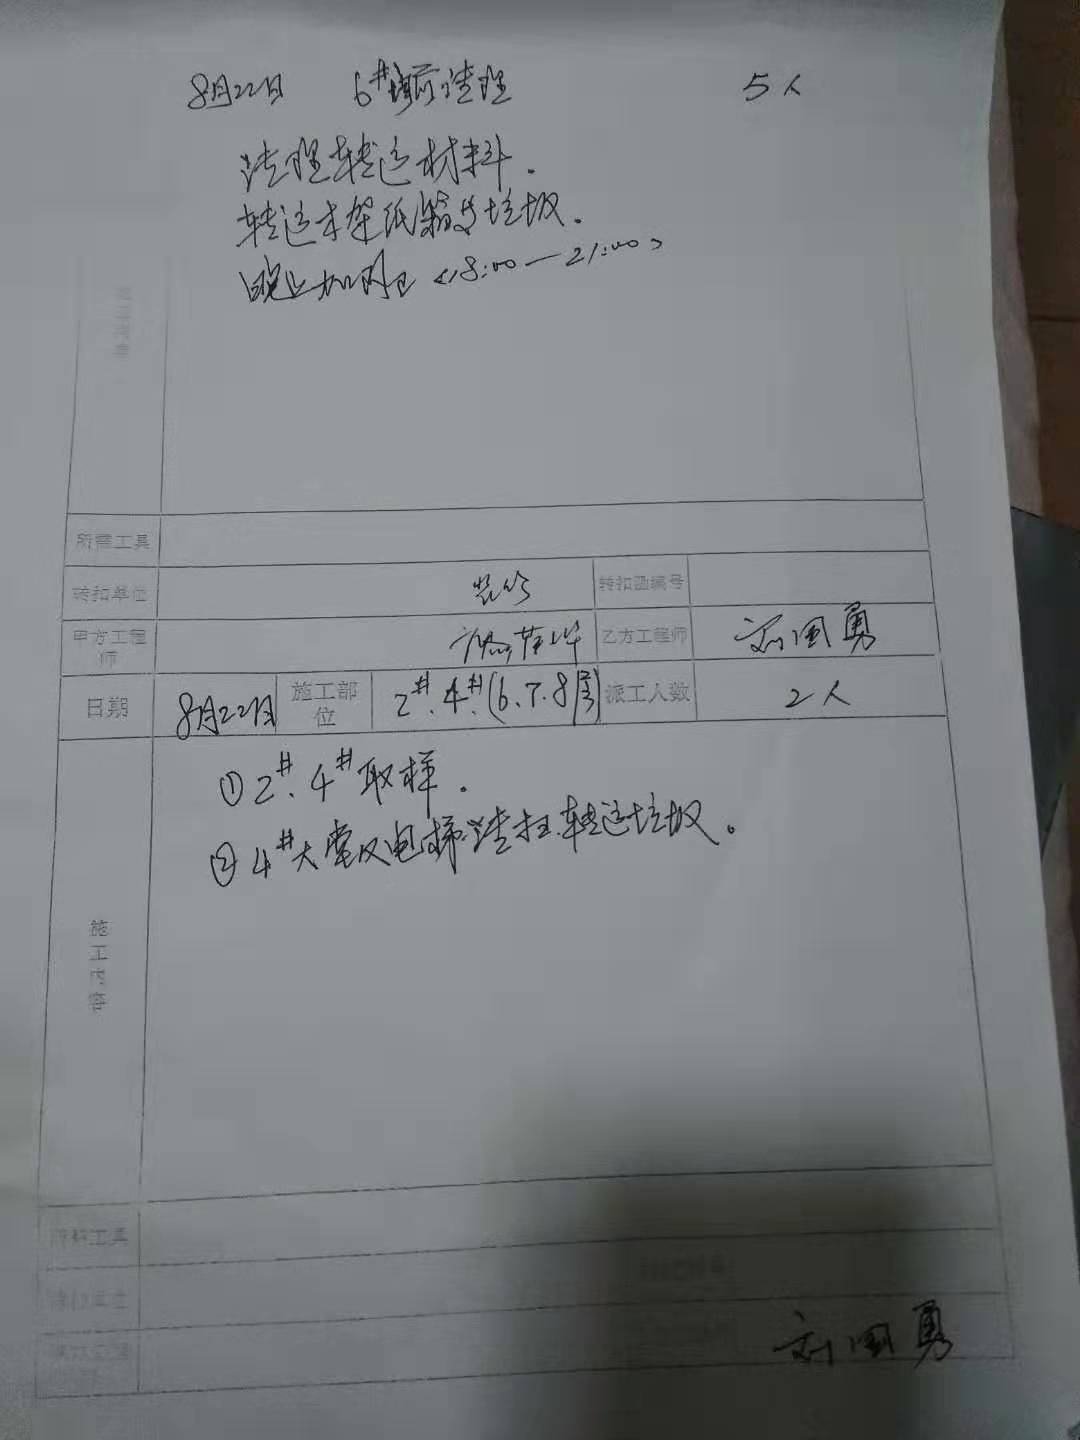 8月22日 6# 清理 5人
清理转运材料.
转运木架纸箱及垃圾.
晚上加班 <18:00—21:00>
施工内容
所需工具
转扣单位 装修 转扣函编号
甲方工程师 乙方工程师 刘国勇
日期 8月22日 施工部位 2#.4#.(6.7.8层) 派工人数 2人
①2#.4#取样.
②4#大堂及电梯清扫.转运垃圾。
施工内容
所需工具
转扣单位
甲方工程师 刘国勇